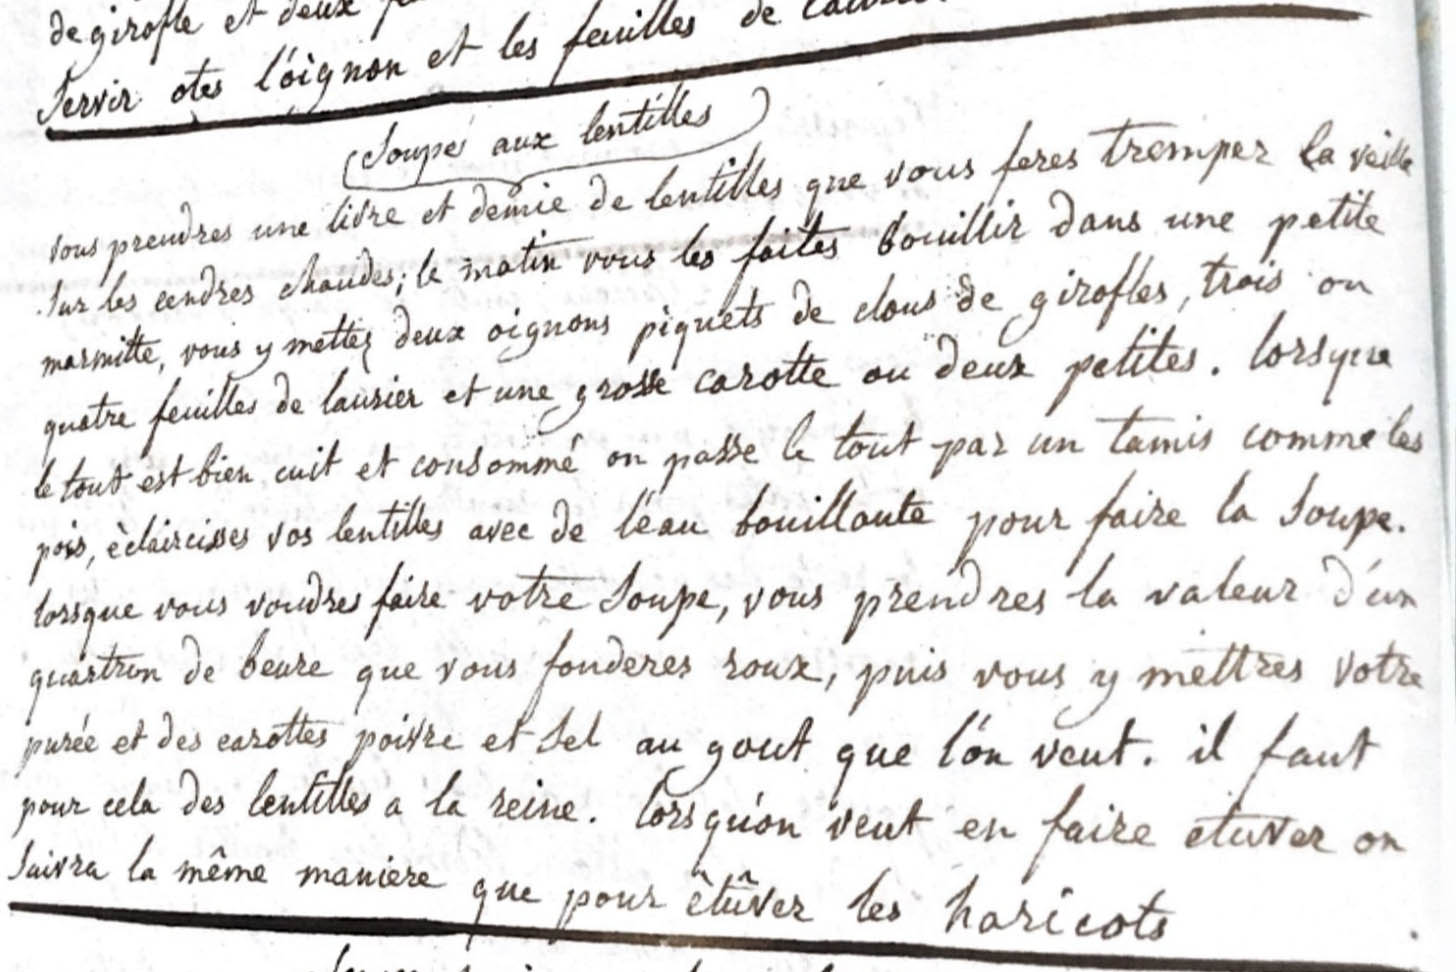 de girofle et deux
Servir otes l'óignon et les feuilles de
Soupe aux lentilles
vous prendres une livre et demie de lentilles que vous feres tremper la veille
sur les cendres chaudes; le matin vous les faites bouillir dans une petite
marmitte, vous y mettez deux oignons piquets de clous de girofles, trois ou
quatre feuilles de laurier et une grosse carotte ou deux petites. lorsque
le tout est bien cuit et consommé on passe le tout par un tamis comme les
pois, èclaircisses vos lentilles avec de l'éau bouillante pour faire la soupe.
lorsque vous voudres faire votre soupe, vous prendres la valeur d'un
quartron de beure que vous fonderes roux, puis vous y mettres votre
purée et des carottes poivre et sel au gout que l'ón veut. il faut
pour cela des lentilles a la reine. lorsqu'ón veut en faire etuver on
suivra la même maniere que pour êtûver les haricots